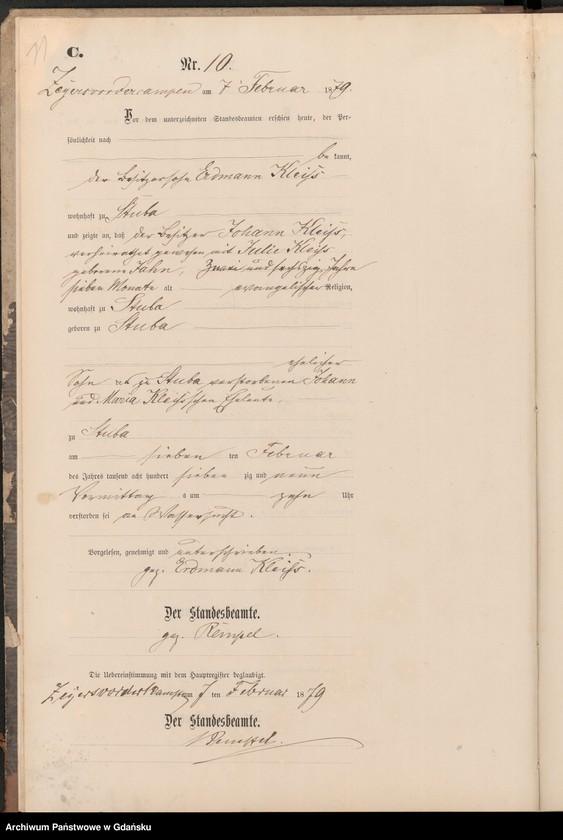 C.
Nr. 10.
Zeyersvordercampen am 7 Februar 1879.
Vor dem unterzeichneten Standesbeamten erschien heute, der Per-
sönlichkeit nach
bekannt,
der Besitzersohn Erdmann Kleiss
wohnhaft zu Stuba
und zeigte an, daß der Besitzer Johann Kleiss,
verheirathet gewesen mit Julie Kleiss
geborene Jahn, Zwei und sechszig Jahre
sieben Monate alt evangelischer Religion,
wohnhaft zu Stuba
geboren zu Stuba
ehelicher
Sohn zu Stuba verstorbenen Johann
und Maria Kleiss'schen Eheleute.
zu Stuba
am sieben ten Februar
des Jahres tausend acht hundert sieben zig und neun
Vormittag s um zehn Uhr
verstorben sei an Wassersucht.
Vorgelesen, genehmigt und unterschrieben.
gez. Erdmann Kleiss.
Der Standesbeamte.
gez. Rempel.
Die Uebereinstimmung mit dem Hauptregister beglaubigt.
Zeyersvorderkampen am 7 ten Februar 1879
Der Standesbeamte.
Rempel.
Archiwum Państwowe w Gdańsku